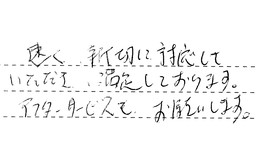 速く、親切に対応して
いただき、満足しております。
アフターサービスもお願いします。